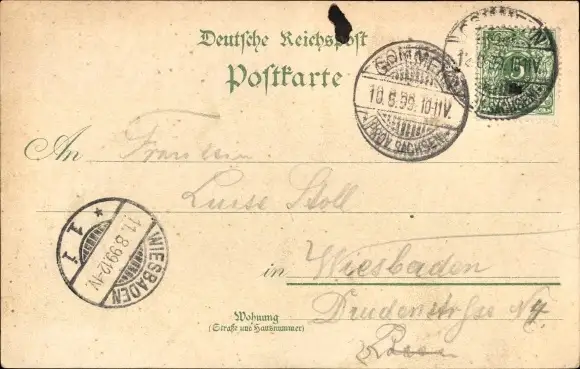 Deutsche Reichspost
Postkarte
GOMMERN
10.8.99. 10-11V.
(PROV. SACHSEN)
5
An Fräulein
Luise Stoll
in Wiesbaden
WIESBADEN
11.8.99. 12-1V.
* 1 1
Wohnung
(Straße und Hausnummer)
Drudenstrße N 4